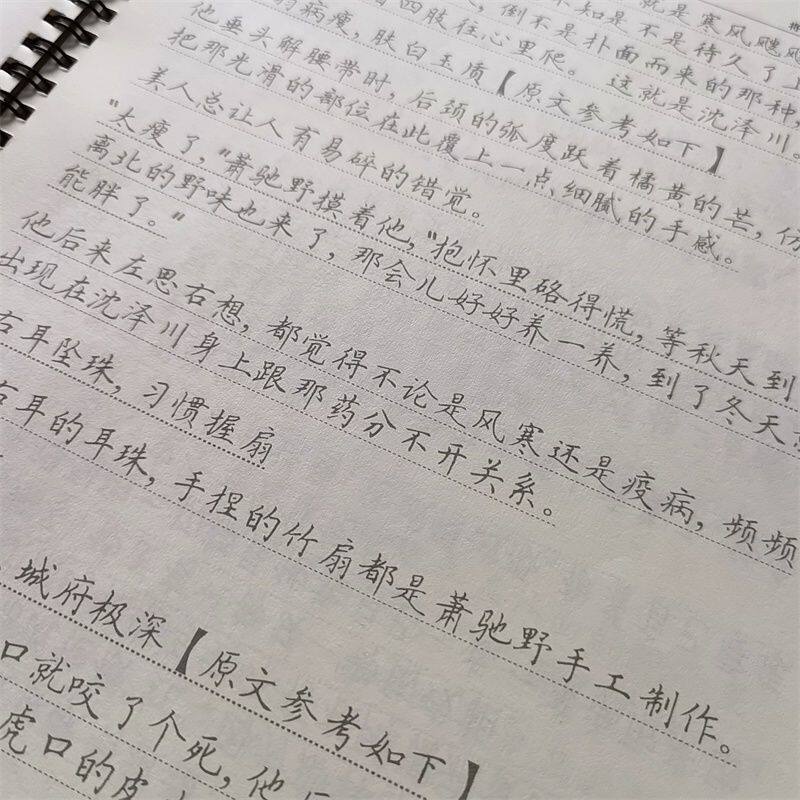 就是寒风飕飕
不知是不是待久了上
倒不是扑面而来的那种,
四肢往心里爬。这就是沈泽川。
病瘦,肤白玉质【原文参考如下】
他垂头解腰带时,后颈的弧度跃着橘黄的芒,仿
把那光滑的部位在此覆上一点细腻的手感。
美人总让人有易碎的错觉。
“太瘦了,”萧驰野摸着他,“抱怀里硌得慌,等秋天到
离北的野味也来了,那会儿好好养一养,到了冬天
能胖了。”
他后来左思右想,都觉得不论是风寒还是疫病,频频
出现在沈泽川身上跟那药分不开关系。
右耳坠珠,习惯握扇
右耳的耳珠,手捏的竹扇都是萧驰野手工制作。
城府极深【原文参考如下】
口就咬了个死,他
虎口的皮